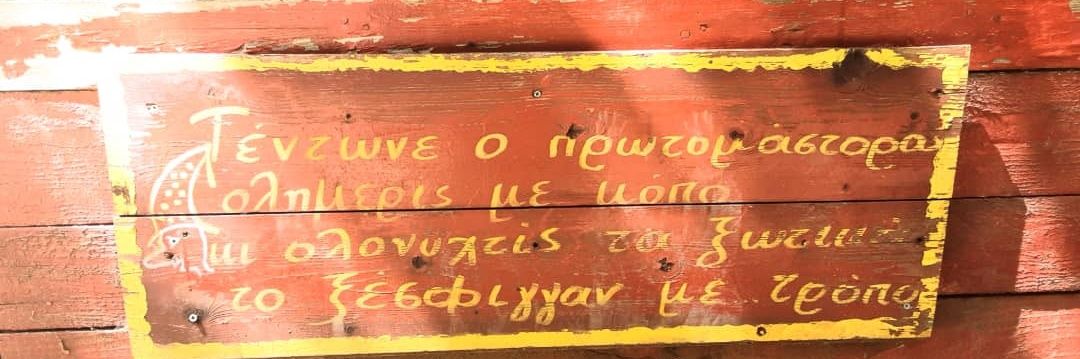 Τέντωνε ο πρωτομάστορας
ολημερίς με κόπο
κι ολονυχτίς τα ξωτικά
το ξέσφιγγαν με τρόπο